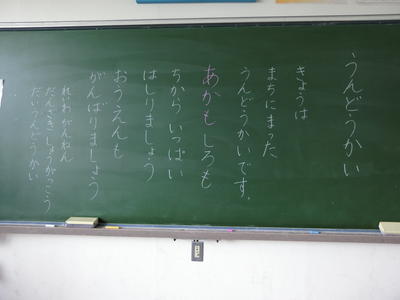 うんどうかい
きょうは
まちにまった
うんどうかいです。
あかもしろも
ちからいっぱい
はしりましょう
おうえんも
がんばりましょう
れいわがんねん
だんざきしょうがっこう
だいうんどうかい